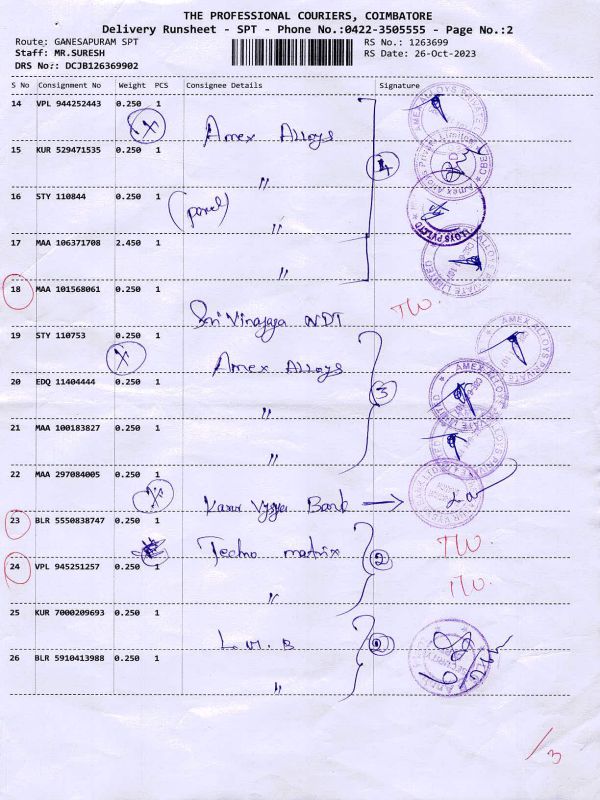 THE PROFESSIONAL COURIERS, COIMBATORE
Delivery Runsheet - SPT - Phone No.:0422-3505555 - Page No.:2
Route: GANESAPURAM SPT RS No.: 1263699
Staff: MR.SURESH RS Date: 26-Oct-2023
DRS No.: DCJB126369902
S No Consignment No Weight PCS Consignee Details Signature
14 VPL 944252443 0.250 1
Amex Alloys
15 KUR 529471535 0.250 1
〃
4
16 STY 110844 0.250 1
〃
17 MAA 106371708 2.450 1
〃
18 MAA 101568061 0.250 1
Sri Vinayaga NDT
19 STY 110753 0.250 1
Amex Alloys
20 EDQ 11404444 0.250 1
〃
3
21 MAA 100183827 0.250 1
〃
22 MAA 297084005 0.250 1
Karur Vysya Bank →
23 BLR 5550838747 0.250 1
Techno matrix
2
24 VPL 945251257 0.250 1
〃
25 KUR 7000209693 0.250 1
L.V.B
26 BLR 5910413988 0.250 1
〃
/3